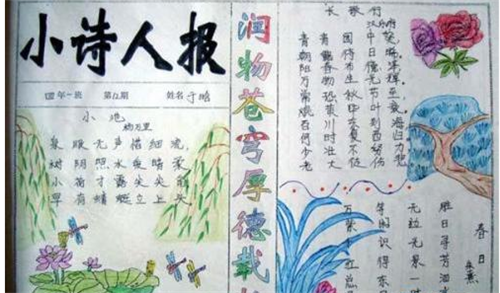 小诗人报
四年一班 第12期 姓名 于晗
小池
杨万里
泉眼无声惜细流,
树阴照水爱晴柔
小荷才露尖尖角
早有蜻蜓立上头
润物苍穹厚德载
长歌行
青青园中葵
朝露待日晞
阳春布德泽
万物生光辉
常恐秋节至
焜黄华叶衰
百川东到海
何时复西归
少壮不努力
老大徒伤悲
春日
朱熹
胜日寻芳泗水
无边光景一时
等闲识得东
万紫千红总